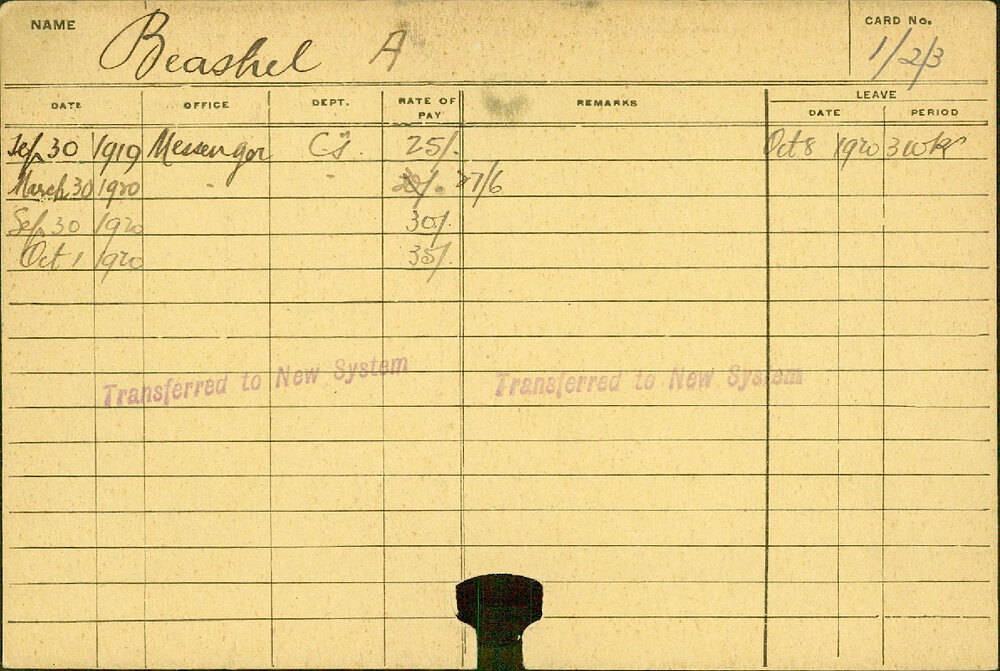 NAME Beashel A CARD No. 1/2/3
DATE OFFICE DEPT. RATE OF PAY REMARKS LEAVE DATE PERIOD
Sep 30 1919 Messenger 25/- Oct 8 1920 3 wk
March 30 1920 " " 27/6
Sep 30 1920 30/-
Oct 1 1920 35/-
Transferred to New System Transferred to New System